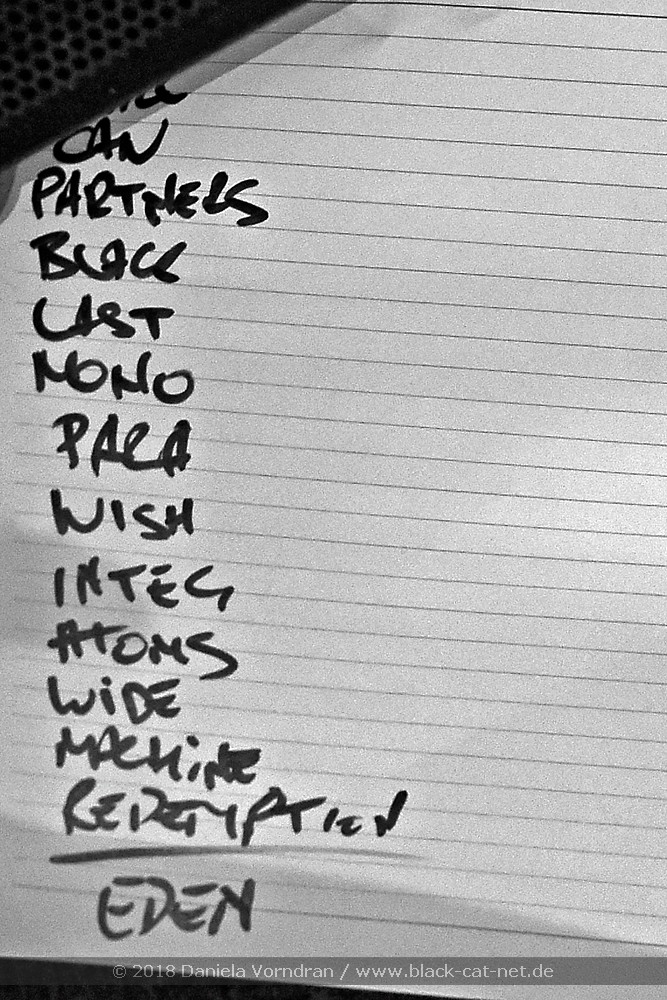 CAN
PARTNERS
BLACK
LAST
MONO
PARA
WISH
INTEG
ATOMS
WIDE
MACHINE
REDEMPTION
EDEN
© 2018 Daniela Vorndran / www.black-cat-net.de